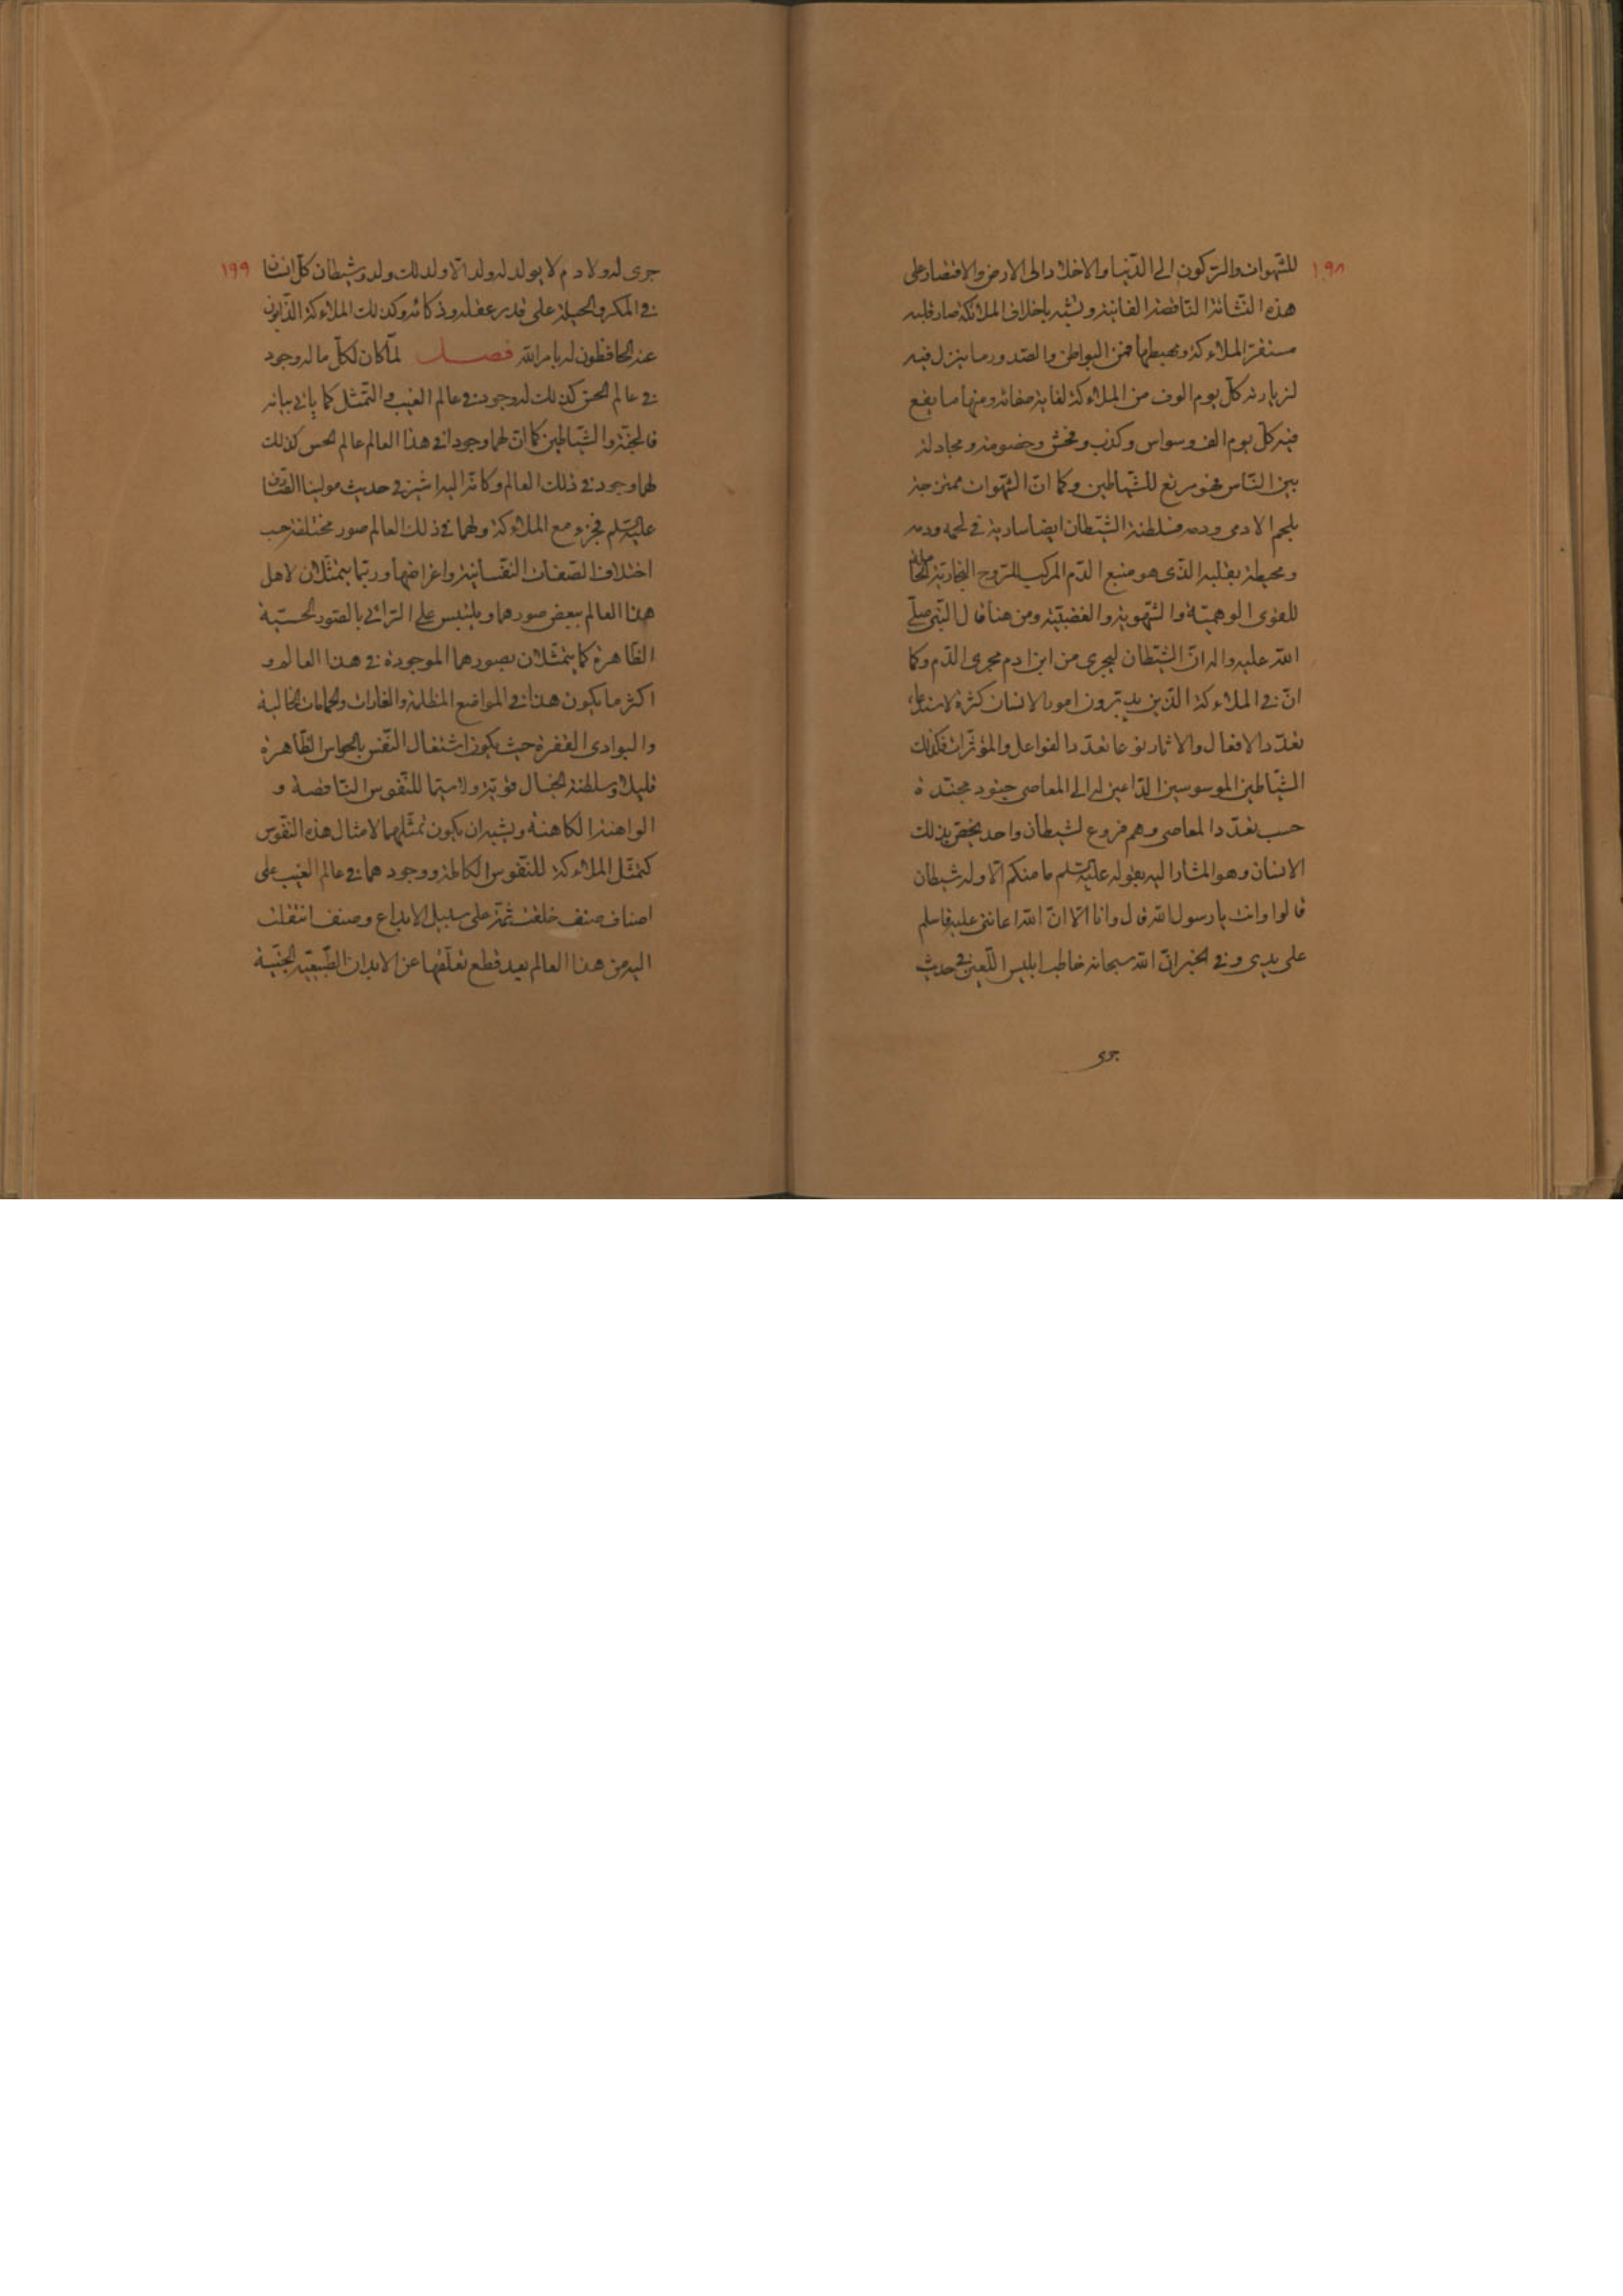 ١٩٨
للشهوات والركون الى الدنيا والاخلاد الى الارض والاقتصار على
هذه النشأة الناقصة الفانية وتشبه باخلاق الملائكة صار قلبه
مستقر الملائكة ومهبطها فمن البواطن والصدور ما ينزل فيه
لزيارته كل يوم الوف من الملائكة لغاية صفائه ومنها ما يقع
فيه كل يوم الف وسواس وكذب وفحش وخصومة ومجادلة
بين الناس فهو مرتع للشياطين وكما ان الشهوات ممتزجة
بلحم الادمي ودمه فسلطنة الشيطان ايضا سارية في لحمه ودمه
ومحيطة بقلبه الذي هو منبع الدم المركب للروح البخارية الحاملة
للقوى الوهمية والشهوية والغضبية ومن هنا قال النبي صلى
الله عليه واله ان الشيطان ليجري من ابن ادم مجرى الدم وكما
ان في الملائكة الذين يدبرون امور الانسان كثرة لاستدعاء
تعدد الافعال والاثار نوعا تعدد الفواعل والمؤثرات فكذلك
الشياطين الموسوسين الداعين له الى المعاصي جنود مجندة
حسب تعدد المعاصي وهم فروع لشيطان واحد يختص بذلك
الانسان وهو المشار اليه بقوله عليه السلم ما منكم الا وله شيطان
قالوا وانت يا رسول الله قال وانا الا ان الله اعانني عليه فاسلم
على يدي وفي الخبر ان الله سبحانه خاطب ابليس اللعين في حديث
جرى
١٩٩
جرى له ولادم لا يولد له ولد الا ولد لك ولد وشيطان كل انسان
في المكر والحيلة على قدر عقله وذكائه وكذلك الملائكة الذابون
عنه الحافظون له بامر الله فصل لما كان لكل ما له وجود
في عالم الحس كذلك له وجود في عالم الغيب والتمثل كما ياتي بيانه
فالجنة والشياطين كما ان لهما وجودا في هذا العالم عالم الحس كذلك
لهما وجود في ذلك العالم وكانه اليه اشير في حديث مولينا الصادق
عليه السلم فجزء مع الملائكة ولهما في ذلك العالم صور مختلفة حسب
اختلاف الصفات النفسانية واغراضها وربما يتمثلان لاهل
هذا العالم ببعض صورهما ويلتبس على الرائي بالصور الحسية
الظاهرة كما يتمثلان بصورهما الموجودة في هذا العالم و
اكثر ما يكون هذا في المواضع المظلمة والغارات والحمامات الخالية
والبوادي القفرة حيث يكون اشتغال النفس بالحواس الظاهرة
قليلا وسلطنة الخيال قوية ولا سيما للنفوس الناقصة و
الواهنة الكاهنة ويشبه ان يكون تمثلهما لامثال هذه النفوس
كتمثل الملائكة للنفوس الكاملة ووجودهما في عالم الغيب على
اصناف صنف خلقت ثمة على سبيل الابداع وصنف انتقلت
اليه من هذا العالم بعد قطع تعلقها عن الابدان الطبيعية الجنية